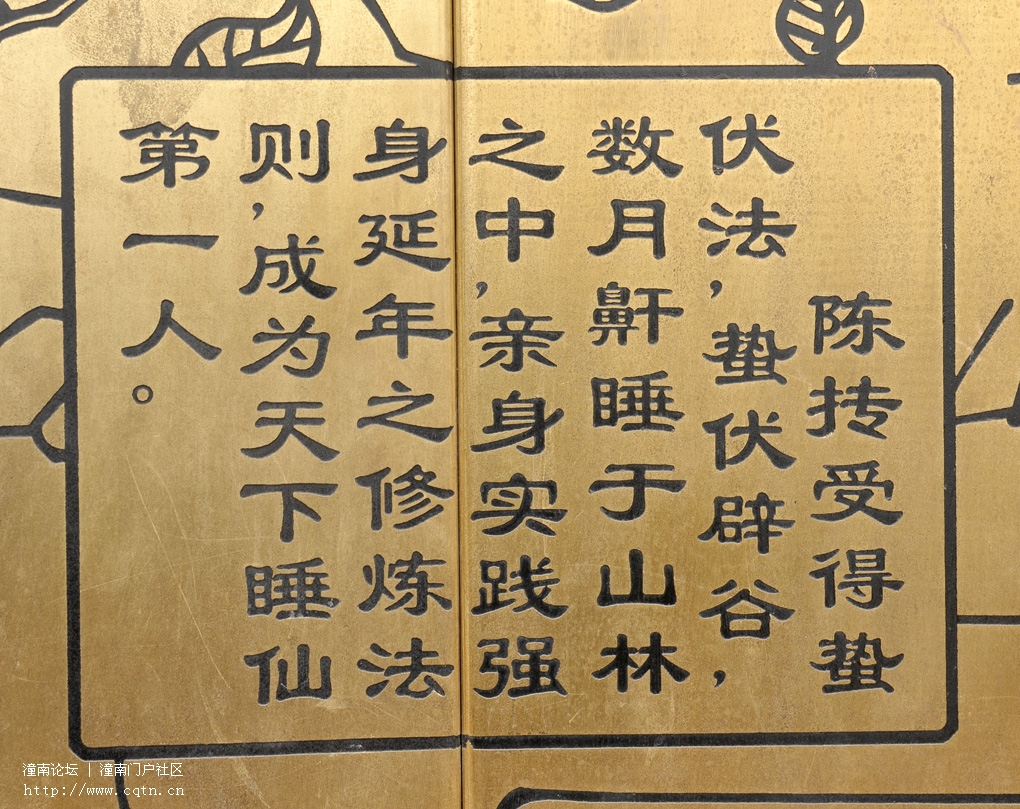 陈抟受得蛰
伏法,蛰伏辟谷,
数月鼾睡于山林
之中,亲身实践强
身延年之修炼法
则,成为天下睡仙
第一人。
潼南论坛 | 潼南门户社区
http://www.cqtn.cn